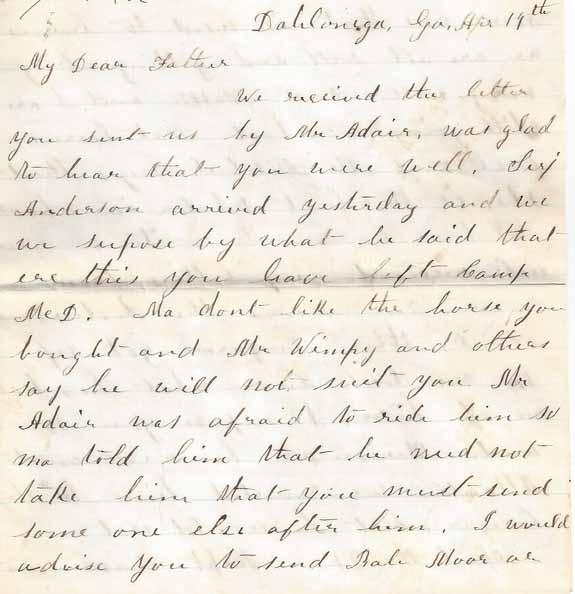 Dahlonega, Ga, Apr 19th
My Dear Father
We received the letter
you sent us by Mr Adair, was glad
to hear that you were well. Serj
Anderson arrived yesterday and we
we supose by what he said that
ere this you have left Camp
McD. Ma dont like the horse you
bought and Mr Wimpy and others
say he will not suit you Mr
Adair was afraid to ride him so
ma told him that he need not
take him that you must send
some one else after him. I would
advise you to send Moor or